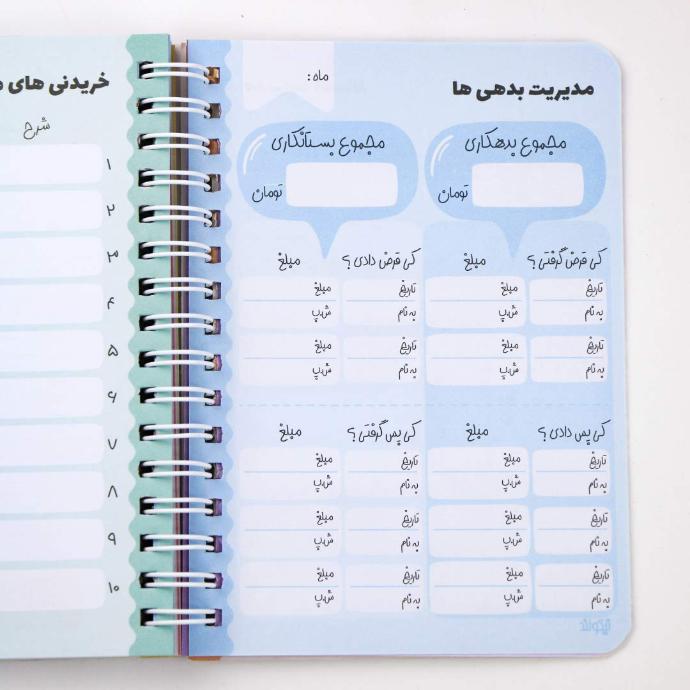 مدیریت بدهی ها
ماه:
مجموع بدهکاری
تومان
مجموع بستانکاری
تومان
کی قرض گرفتی؟ مبلغ
تاریخ مبلغ
به نام ش.پ
تاریخ مبلغ
به نام ش.پ
کی قرض دادی؟ مبلغ
تاریخ مبلغ
به نام ش.پ
تاریخ مبلغ
به نام ش.پ
کی پس دادی؟ مبلغ
تاریخ مبلغ
به نام ش.پ
تاریخ مبلغ
به نام ش.پ
تاریخ مبلغ
به نام ش.پ
کی پس گرفتی؟ مبلغ
تاریخ مبلغ
به نام ش.پ
تاریخ مبلغ
به نام ش.پ
تاریخ مبلغ
به نام ش.پ
خریدنی های
شرح
۱
۲
۳
۴
۵
۶
۷
۸
۹
۱۰